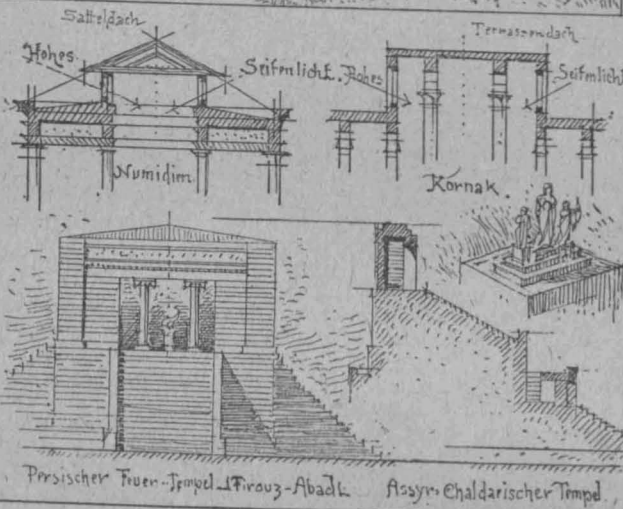 Satteldach
Hohes
Seitenlicht.
Numidien
Terrassendach
Hohes
Seitenlicht
Kornak.
Persischer Feuer-Tempel Firouz-Abad
Assyr. Chaldaeischer Tempel